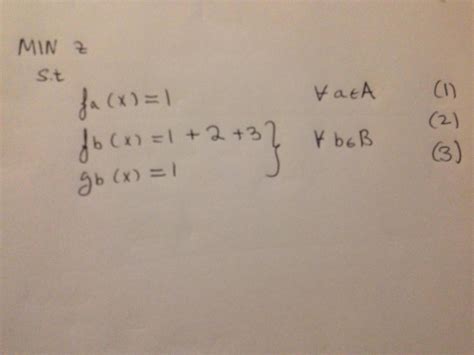 MIN z
s.t
fa(x)=1 ∀ a∈A (1)
fb(x)=1+2+3 } ∀ b∈B (2)
gb(x)=1 (3)